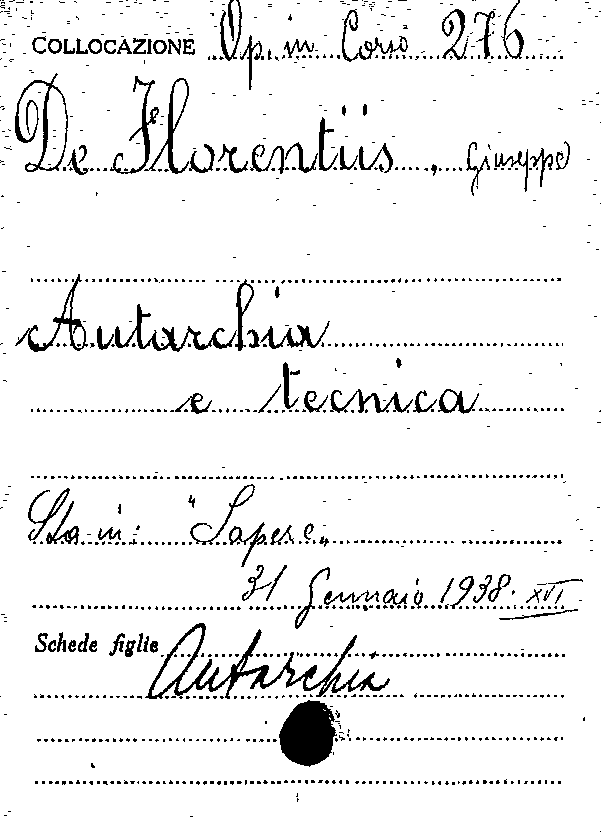 COLLOCAZIONE Op. in Corso 276
De Florentiis, Giuseppe
Autarchia
e tecnica
Sta in: "Sapere„
31 Gennaio 1938. XVI.
Schede figlie Autarchia